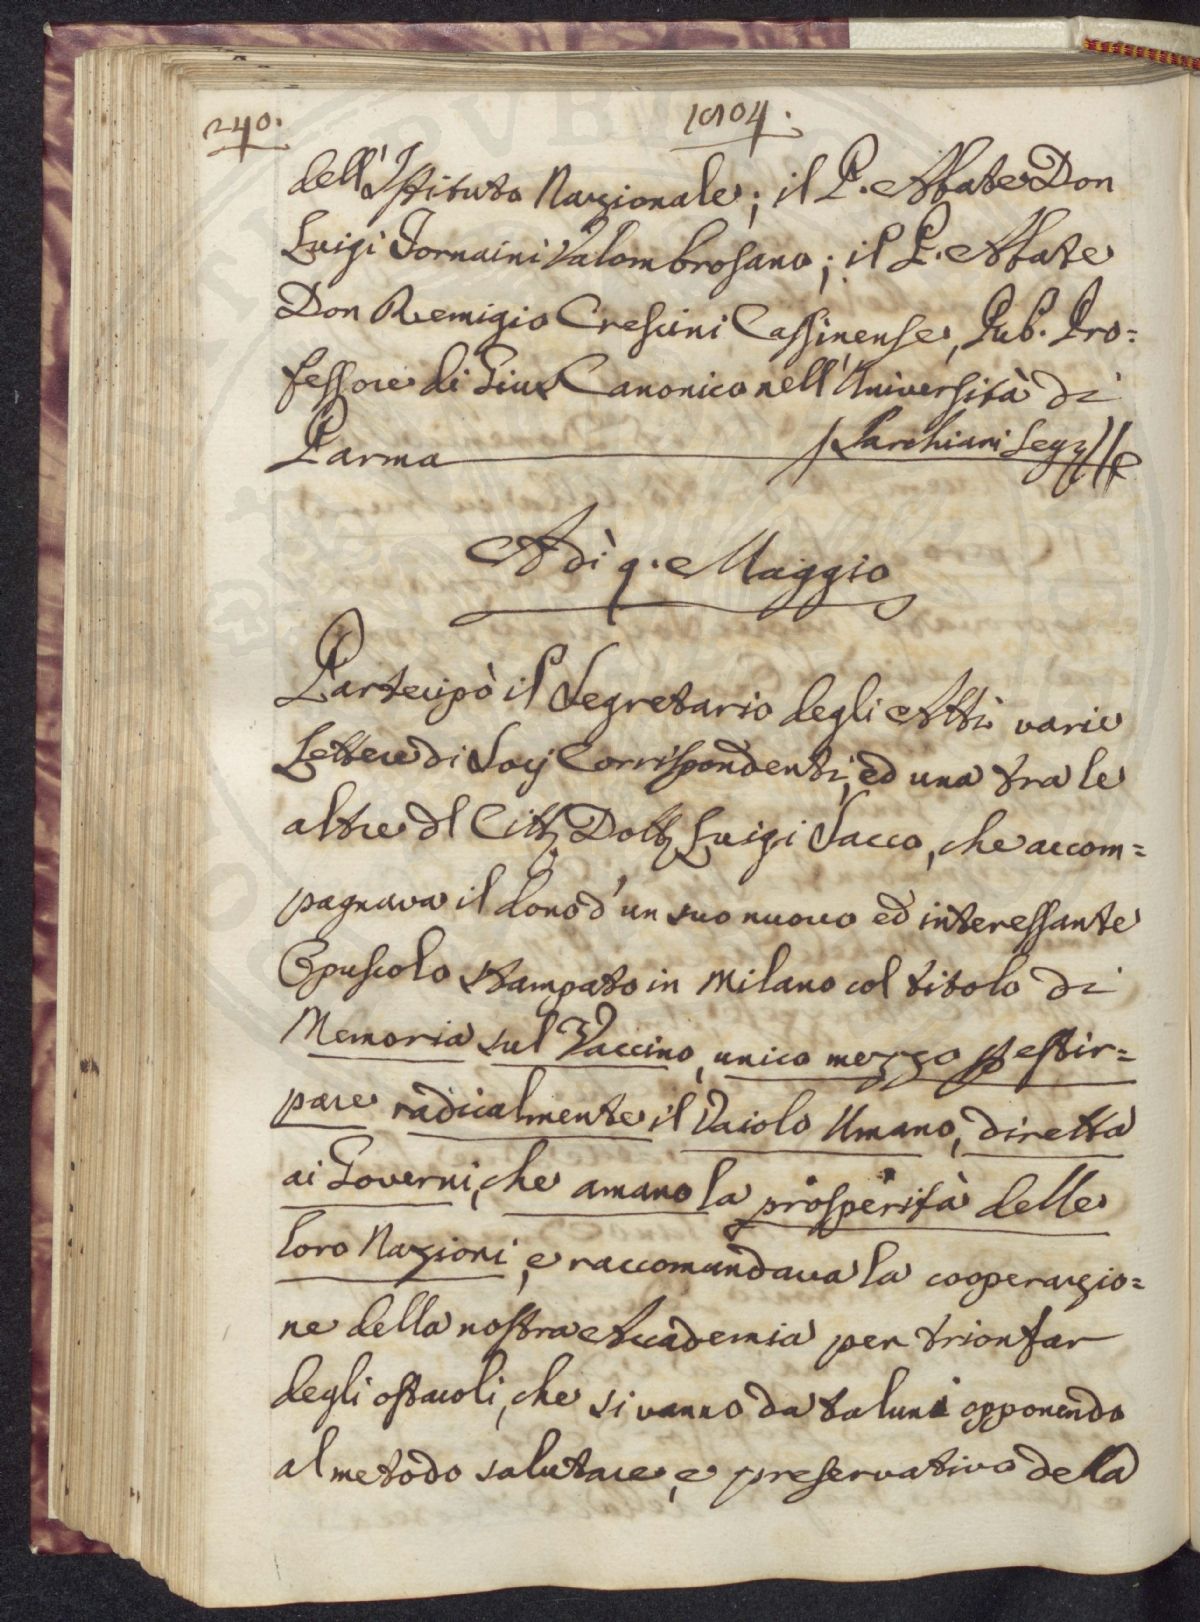 240.
1804.
dell'Istituto Nazionale; il P. Abate Don
Luigi Tornaini Valombrosano; il P. Abate
Don Remigio Crescini Cassinense, Pub. Pro=
fessore di Gius Canonico nell'Università di
Parma
Parchiani Seg
Adì 9. Maggio
Partecipò il Segretario degli Atti varie
Lettere di Socj Corrispondenti, ed una tra le
altre dl Citt. Dott. Luigi Sacco, che accom=
pagnava il dono d'un suo nuovo ed interessante
Opuscolo stampato in Milano col titolo di
Memoria sul Vaccino, unico mezzo p estir=
pare radicalmente il Vaiolo Umano, diretta
ai Governi, che amano la prosperità delle
loro Nazioni, e raccomandava la cooperazio=
ne della nostra Accademia per trionfar
degli ostacoli, che si vanno da taluni opponendo
al metodo salutare, e preservativo della